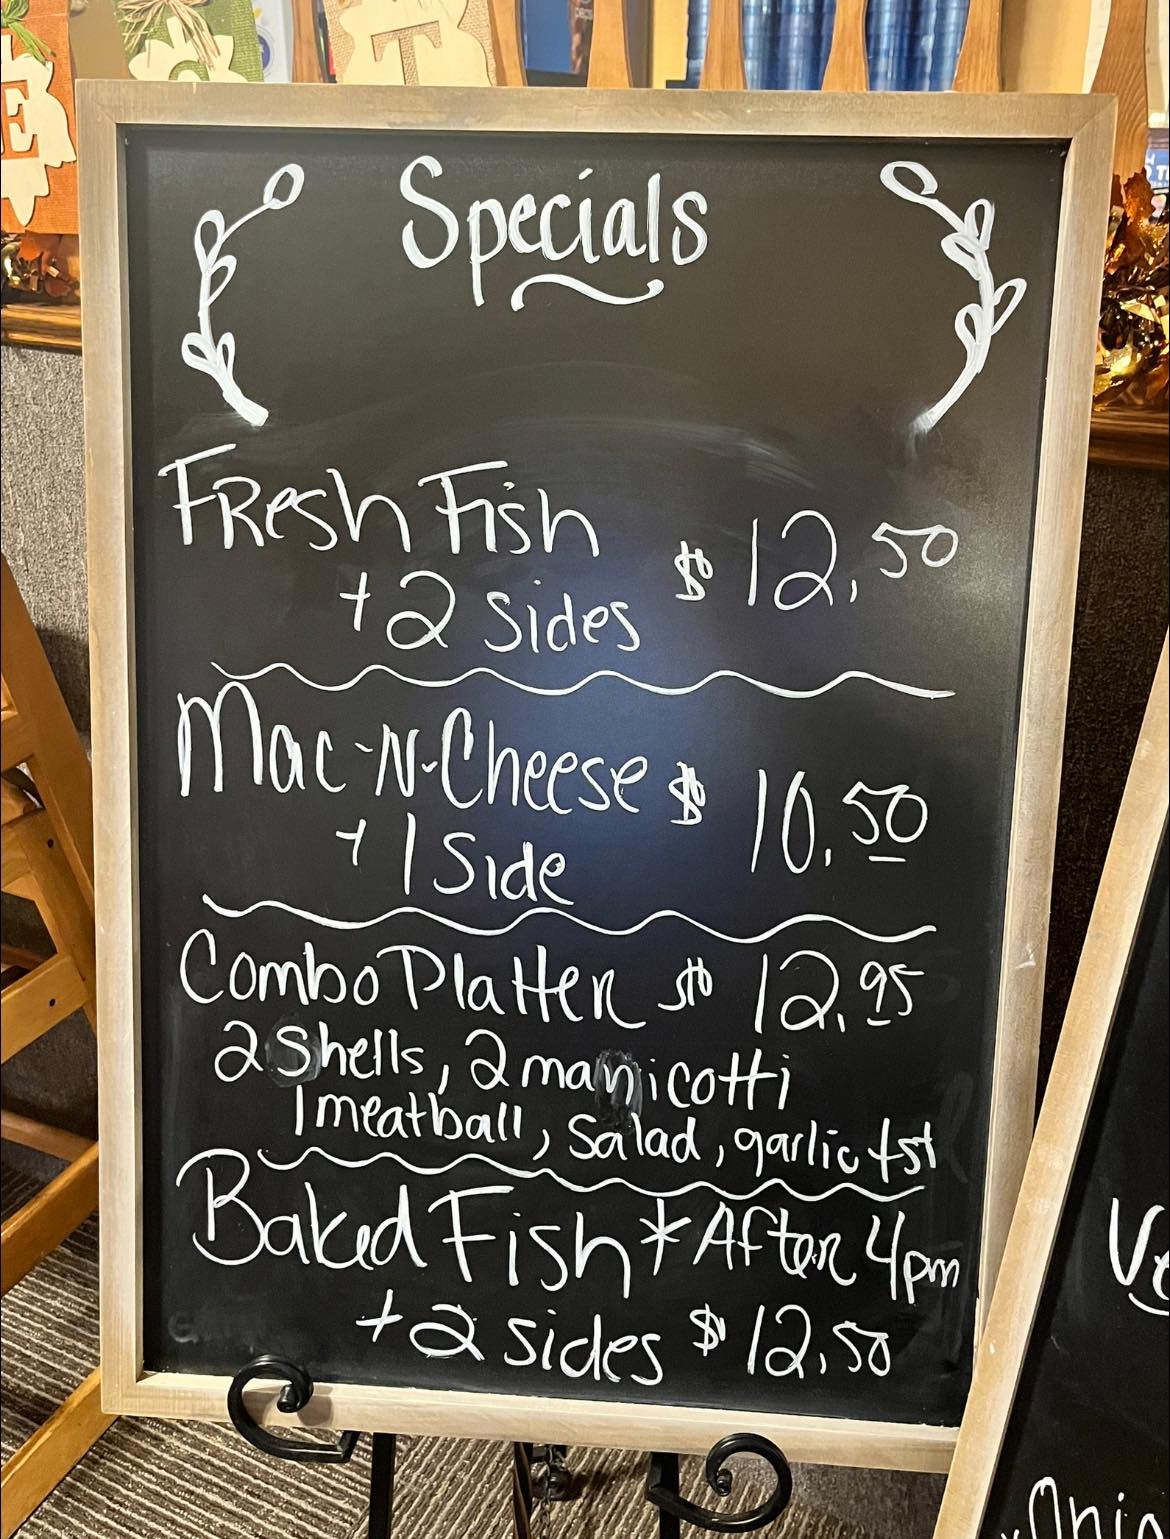 E
T
Specials
Fresh Fish $ 12.50
+2 sides
Mac-N-Cheese $ 10.50
+ 1 Side
Combo Platter $ 12.95
2 Shells, 2 manicotti
1 meatball, Salad, garlic tst
Baked Fish * After 4pm
+2 sides $ 12.50